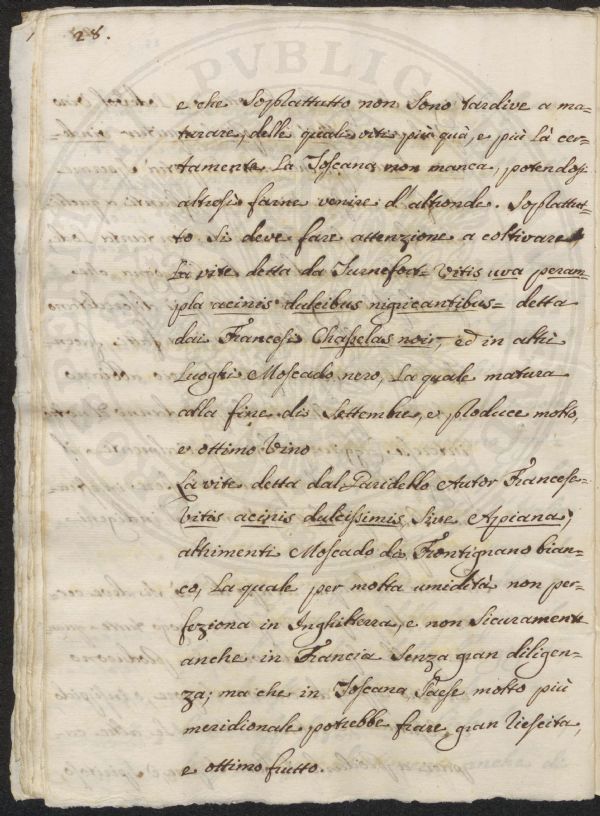 28.
e che Soprattutto non Sono tardive a ma-
turare, delle quali viti più quà, e più là cer-
tamente La Toscana non manca, potendosi
altresì farne venire d'altronde. Soprattut-
to Si deve fare attenzione a coltivare
La vite detta da Turnefort= Vitis uva peram-
pla acinis dulcibus nigricantibus= detta
dai Francesi Chasselas noir, ed in altri
Luoghi Moscado nero, La quale matura
alla fine di Settembre, e produce molto,
e ottimo Vino
La vite detta dal Garidello Autor Francese-
Vitis acinis dulcissimis, Sive Apiana,
altrimenti Moscado di Frontignano bian-
co, La quale per molta umidità non per-
feziona in Inghilterra, e non Sicuramente
anche in Francia Senza gran diligen-
za; ma che in Toscana Paese molto più
meridionale potrebbe frare gran riescita,
e ottimo frutto.
PVBLIC